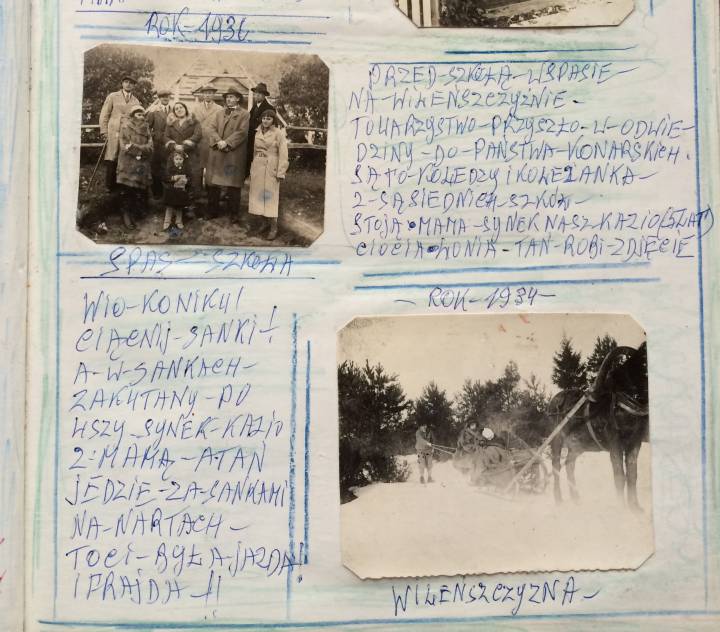 ROK-1936
PRZED-SZKOŁĄ-W SPASIE-
NA-WILEŃSZCZYŹNIE-
TOWARZYSTWO-PRZYSZŁO-W-ODWIE-
DZINY-DO-PAŃSTWA-KONARSKICH.
SĄ-TO-KOLEDZY I KOLEŻANKA-
Z-SĄSIEDNICH-SZKÓŁ-
STOJĄ-MAMA-SYNEK NASZ-KAZIO(5LAT)
CIOCIA-LONIA-TAN-ROBI-ZDJĘCIE
SPAS-SZKOŁA
WIO-KONIKU!
CIĄGNIJ-SANKI!
A-W-SANKACH-
ZAKUTANY-PO
USZY-SYNEK-KAZIO
Z-MAMĄ-A TAN
JEDZIE-ZA-SANKAMI
NA-NARTACH-
TOCI-BYŁA JAZDA!
I FRAJDA-!!
-ROK-1934-
WILEŃSZCZYZNA-